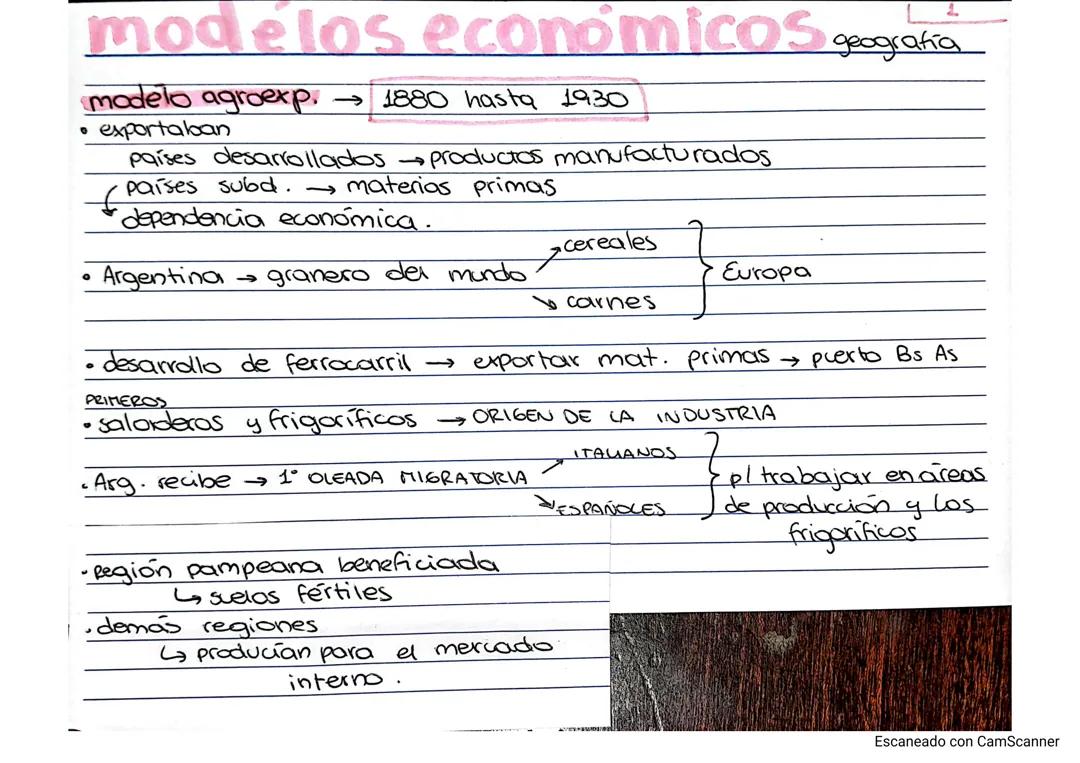 modelos económicos
1
geografía
modelo agroexp. → 1880 hasta 1930
• exportaban
países desarrollados → productos manufacturados
países subd. → materias primas
dependencia económica.
• Argentina → granero del mundo
cereales
carnes
Europa
• desarrollo de ferrocarril → exportar mat. primas → puerto Bs As
PRIMEROS
• saladeros y frigoríficos → ORIGEN DE LA INDUSTRIA
• Arg. recibe → 1° OLEADA MIGRATORIA
ITALIANOS
ESPAÑOLES
p/ trabajar en áreas
de producción y los
frigoríficos
• Región pampeana beneficiada
↳ suelos fértiles
• demás regiones
↳ producían para el mercado
interno.
Escaneado con CamScanner